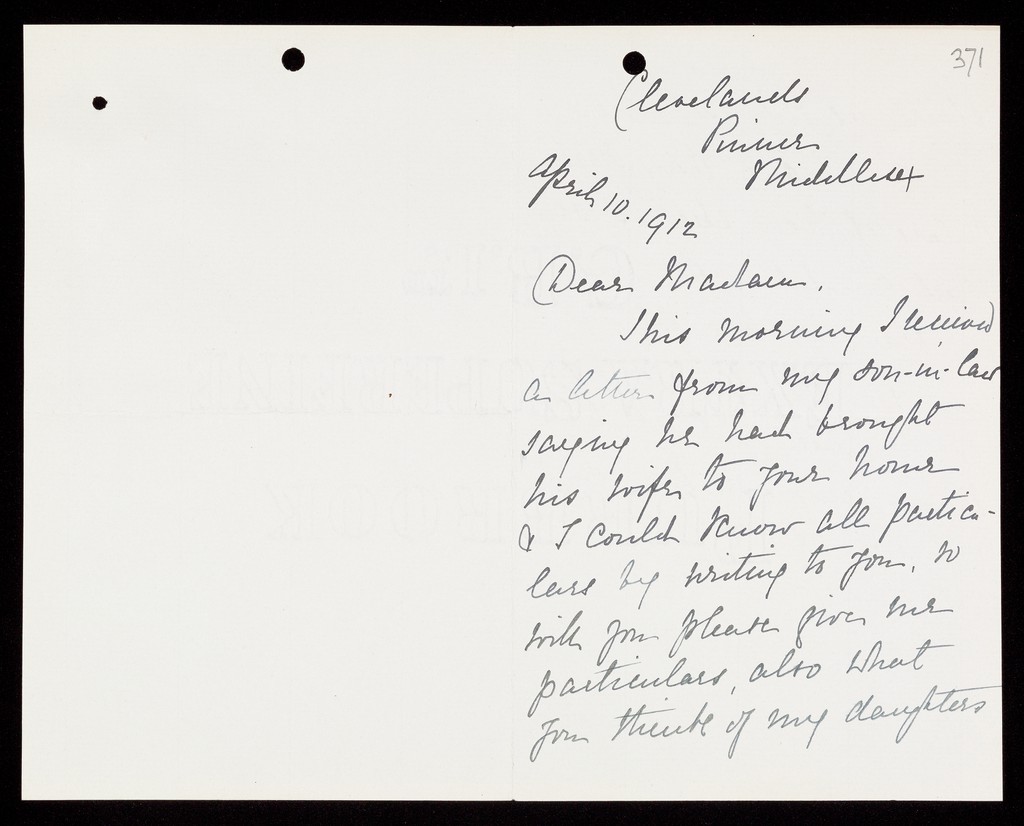 371
Clevelands
Pinner
Middlesex
April 10. 1912
Dear Madam,
This morning I received
a letter from my son-in-law
saying he had brought
his wife to your home
& I could know all particu-
lars by writing to you, so
will you please give me
particulars, also what
you think of my daughters